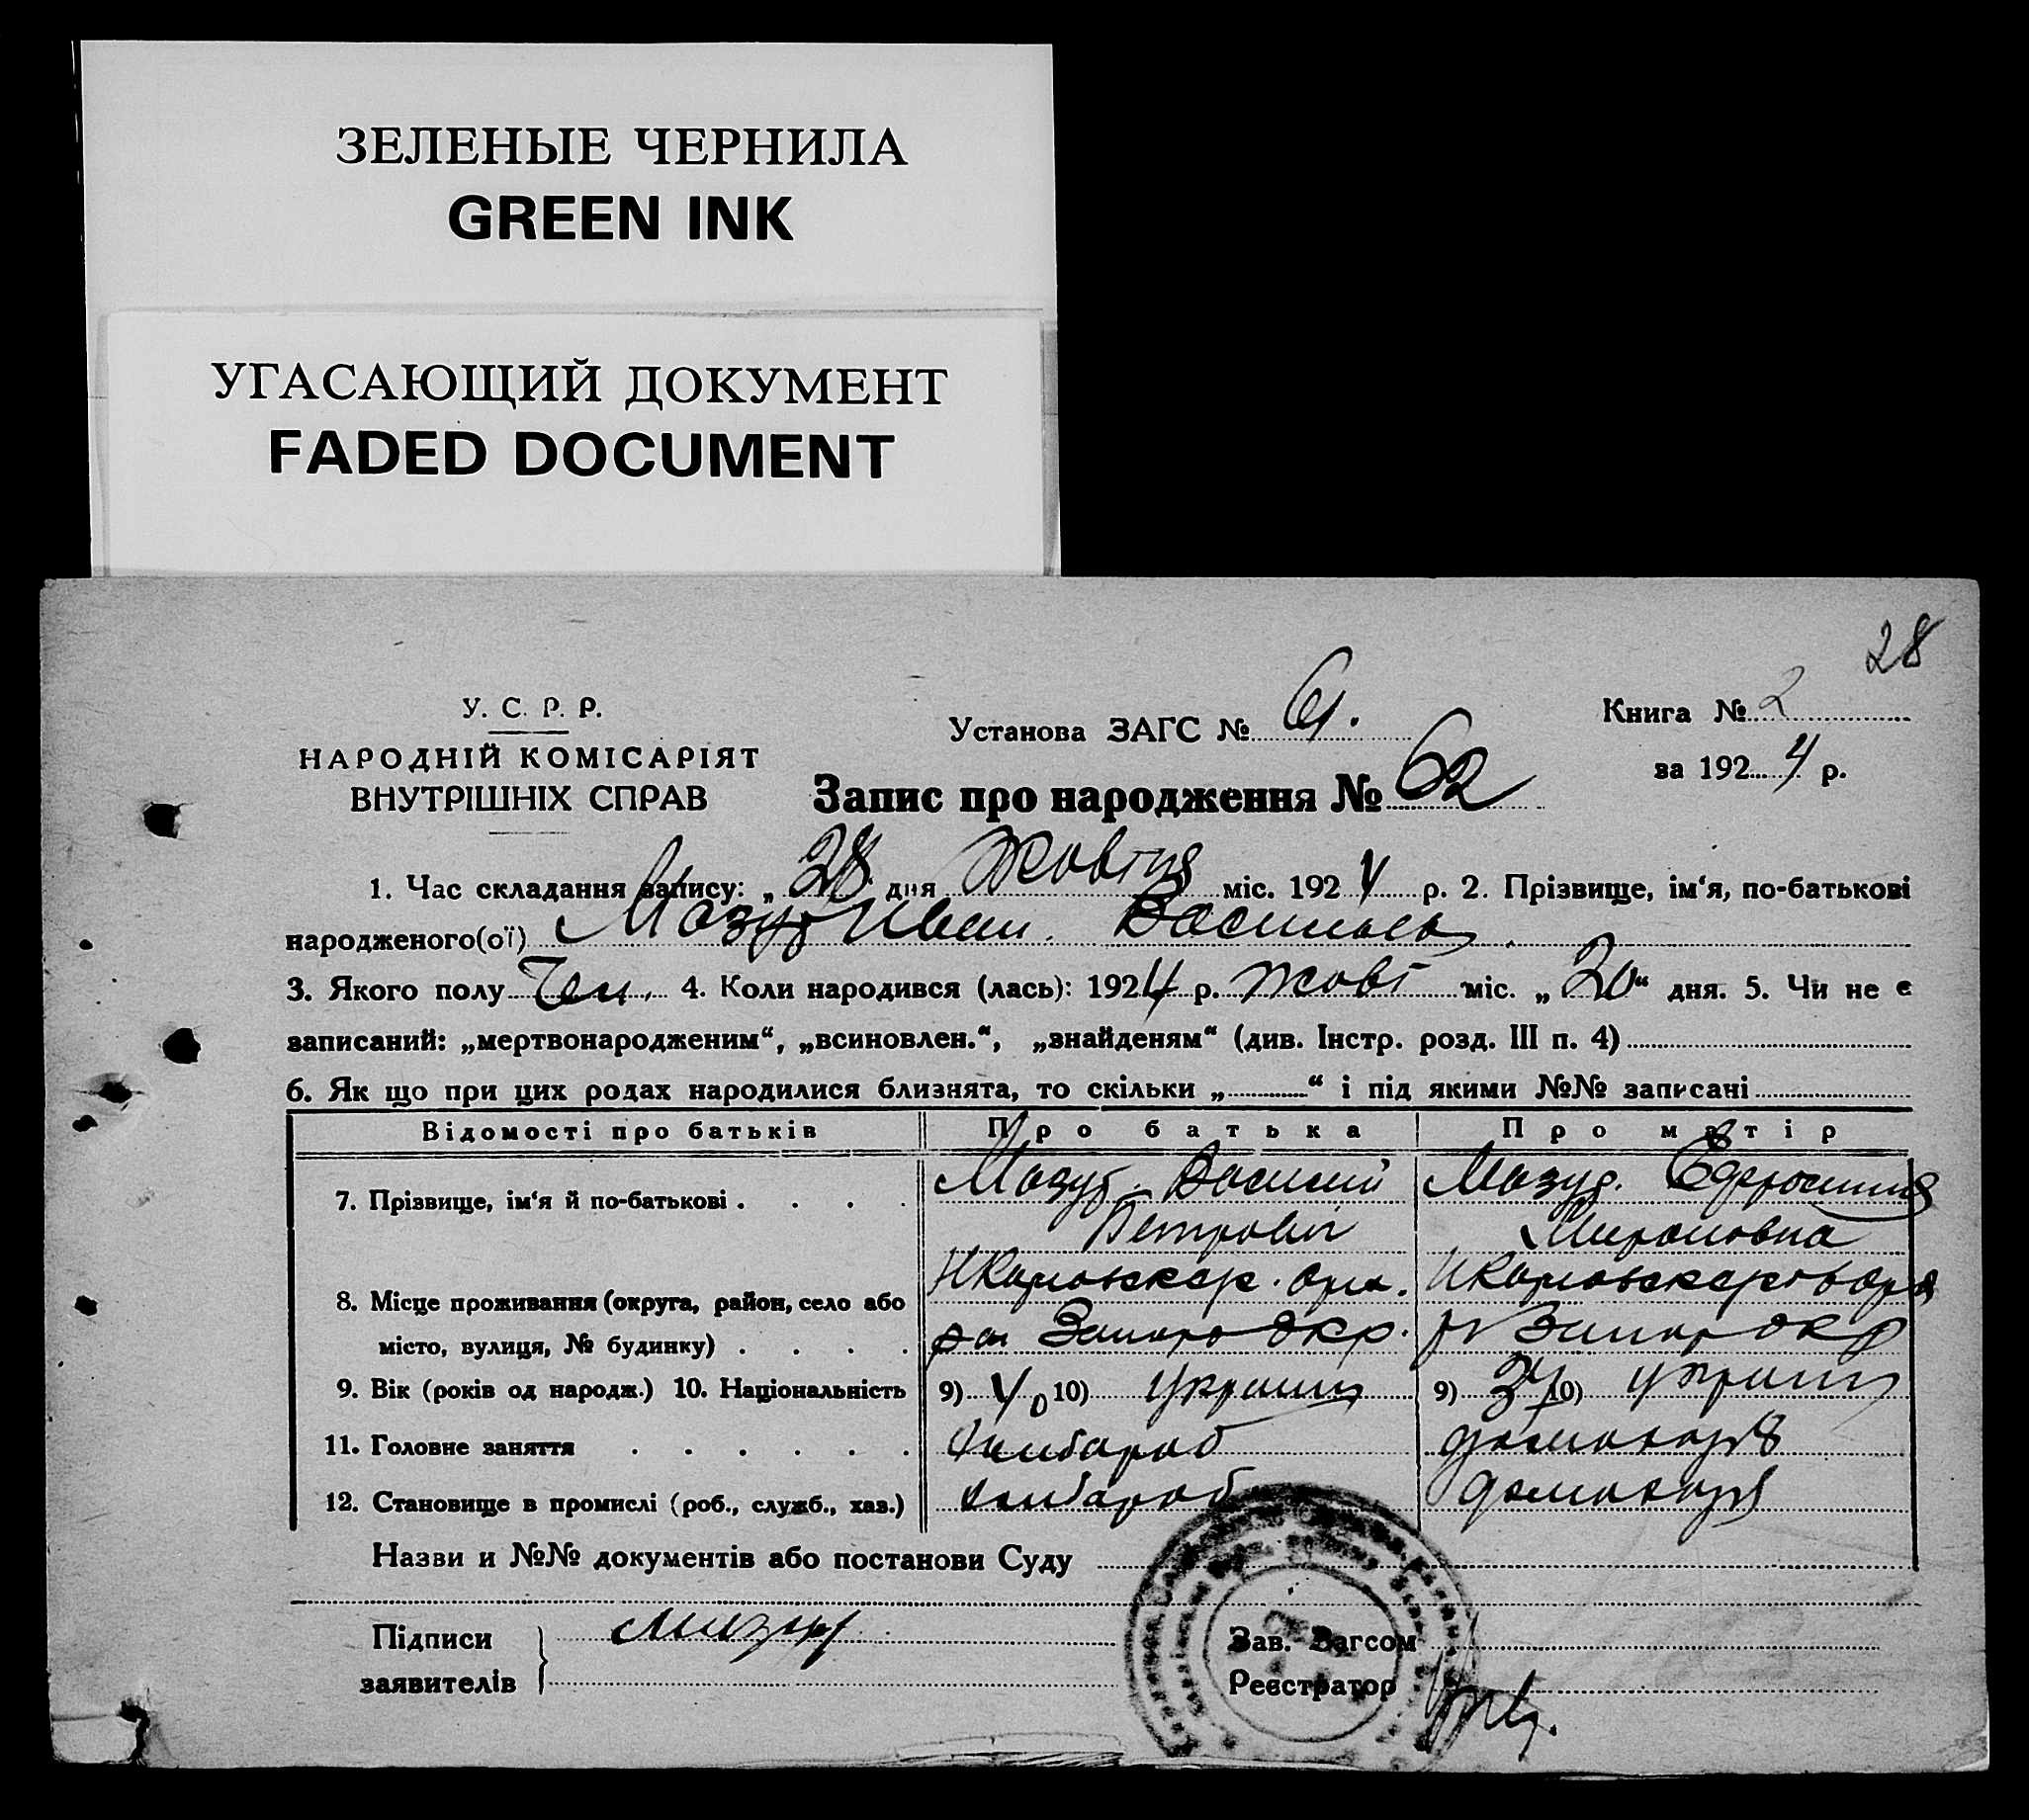 ЗЕЛЕНЫЕ ЧЕРНИЛА
GREEN INK
УГАСАЮЩИЙ ДОКУМЕНТ
FADED DOCUMENT
28
У. С. Р. Р.
НАРОДНІЙ КОМІСАРІЯТ
ВНУТРІШНІХ СПРАВ
Установа ЗАГС №
Книга № 2
за 1924 р.
Запис про народження № 62
1. Час складання запису: „28 дня Жовтня міс. 1924 р. 2. Прізвище, ім‘я, по-батькові
народженого(ої) Мазур Иван Васильев
3. Якого полу Чол. 4. Коли народився (лась): 1924 р. жовт міс. „20“ дня. 5. Чи не є
записаний: „мертвонародженим“, „всиновлен.“, „знайденям“ (див. Інстр. розд. III п. 4)
6. Як що при цих родах народилися близнята, то скільки „ “ і під якими №№ записані
Відомості про батьків Про батька Про матір
7. Прізвище, ім‘я й по-батькові . . . . Мазур Василий Мазур.
Петрович Мироновна
8. Місце проживання (округа, район, село або
місто, вулиця, № будинку) . . . .
9. Вік (років од народж.) 10. Національність 9) 10) украин 9) 10) украин
11. Головне заняття . . . . . . хлибороб домохазя
12. Становище в промислі (роб., служб., хаз.) хлибороб домохазя
Назви и №№ документів або постанови Суду
Підписи Мазур Зав. Загсом
заявителів Реєстратор